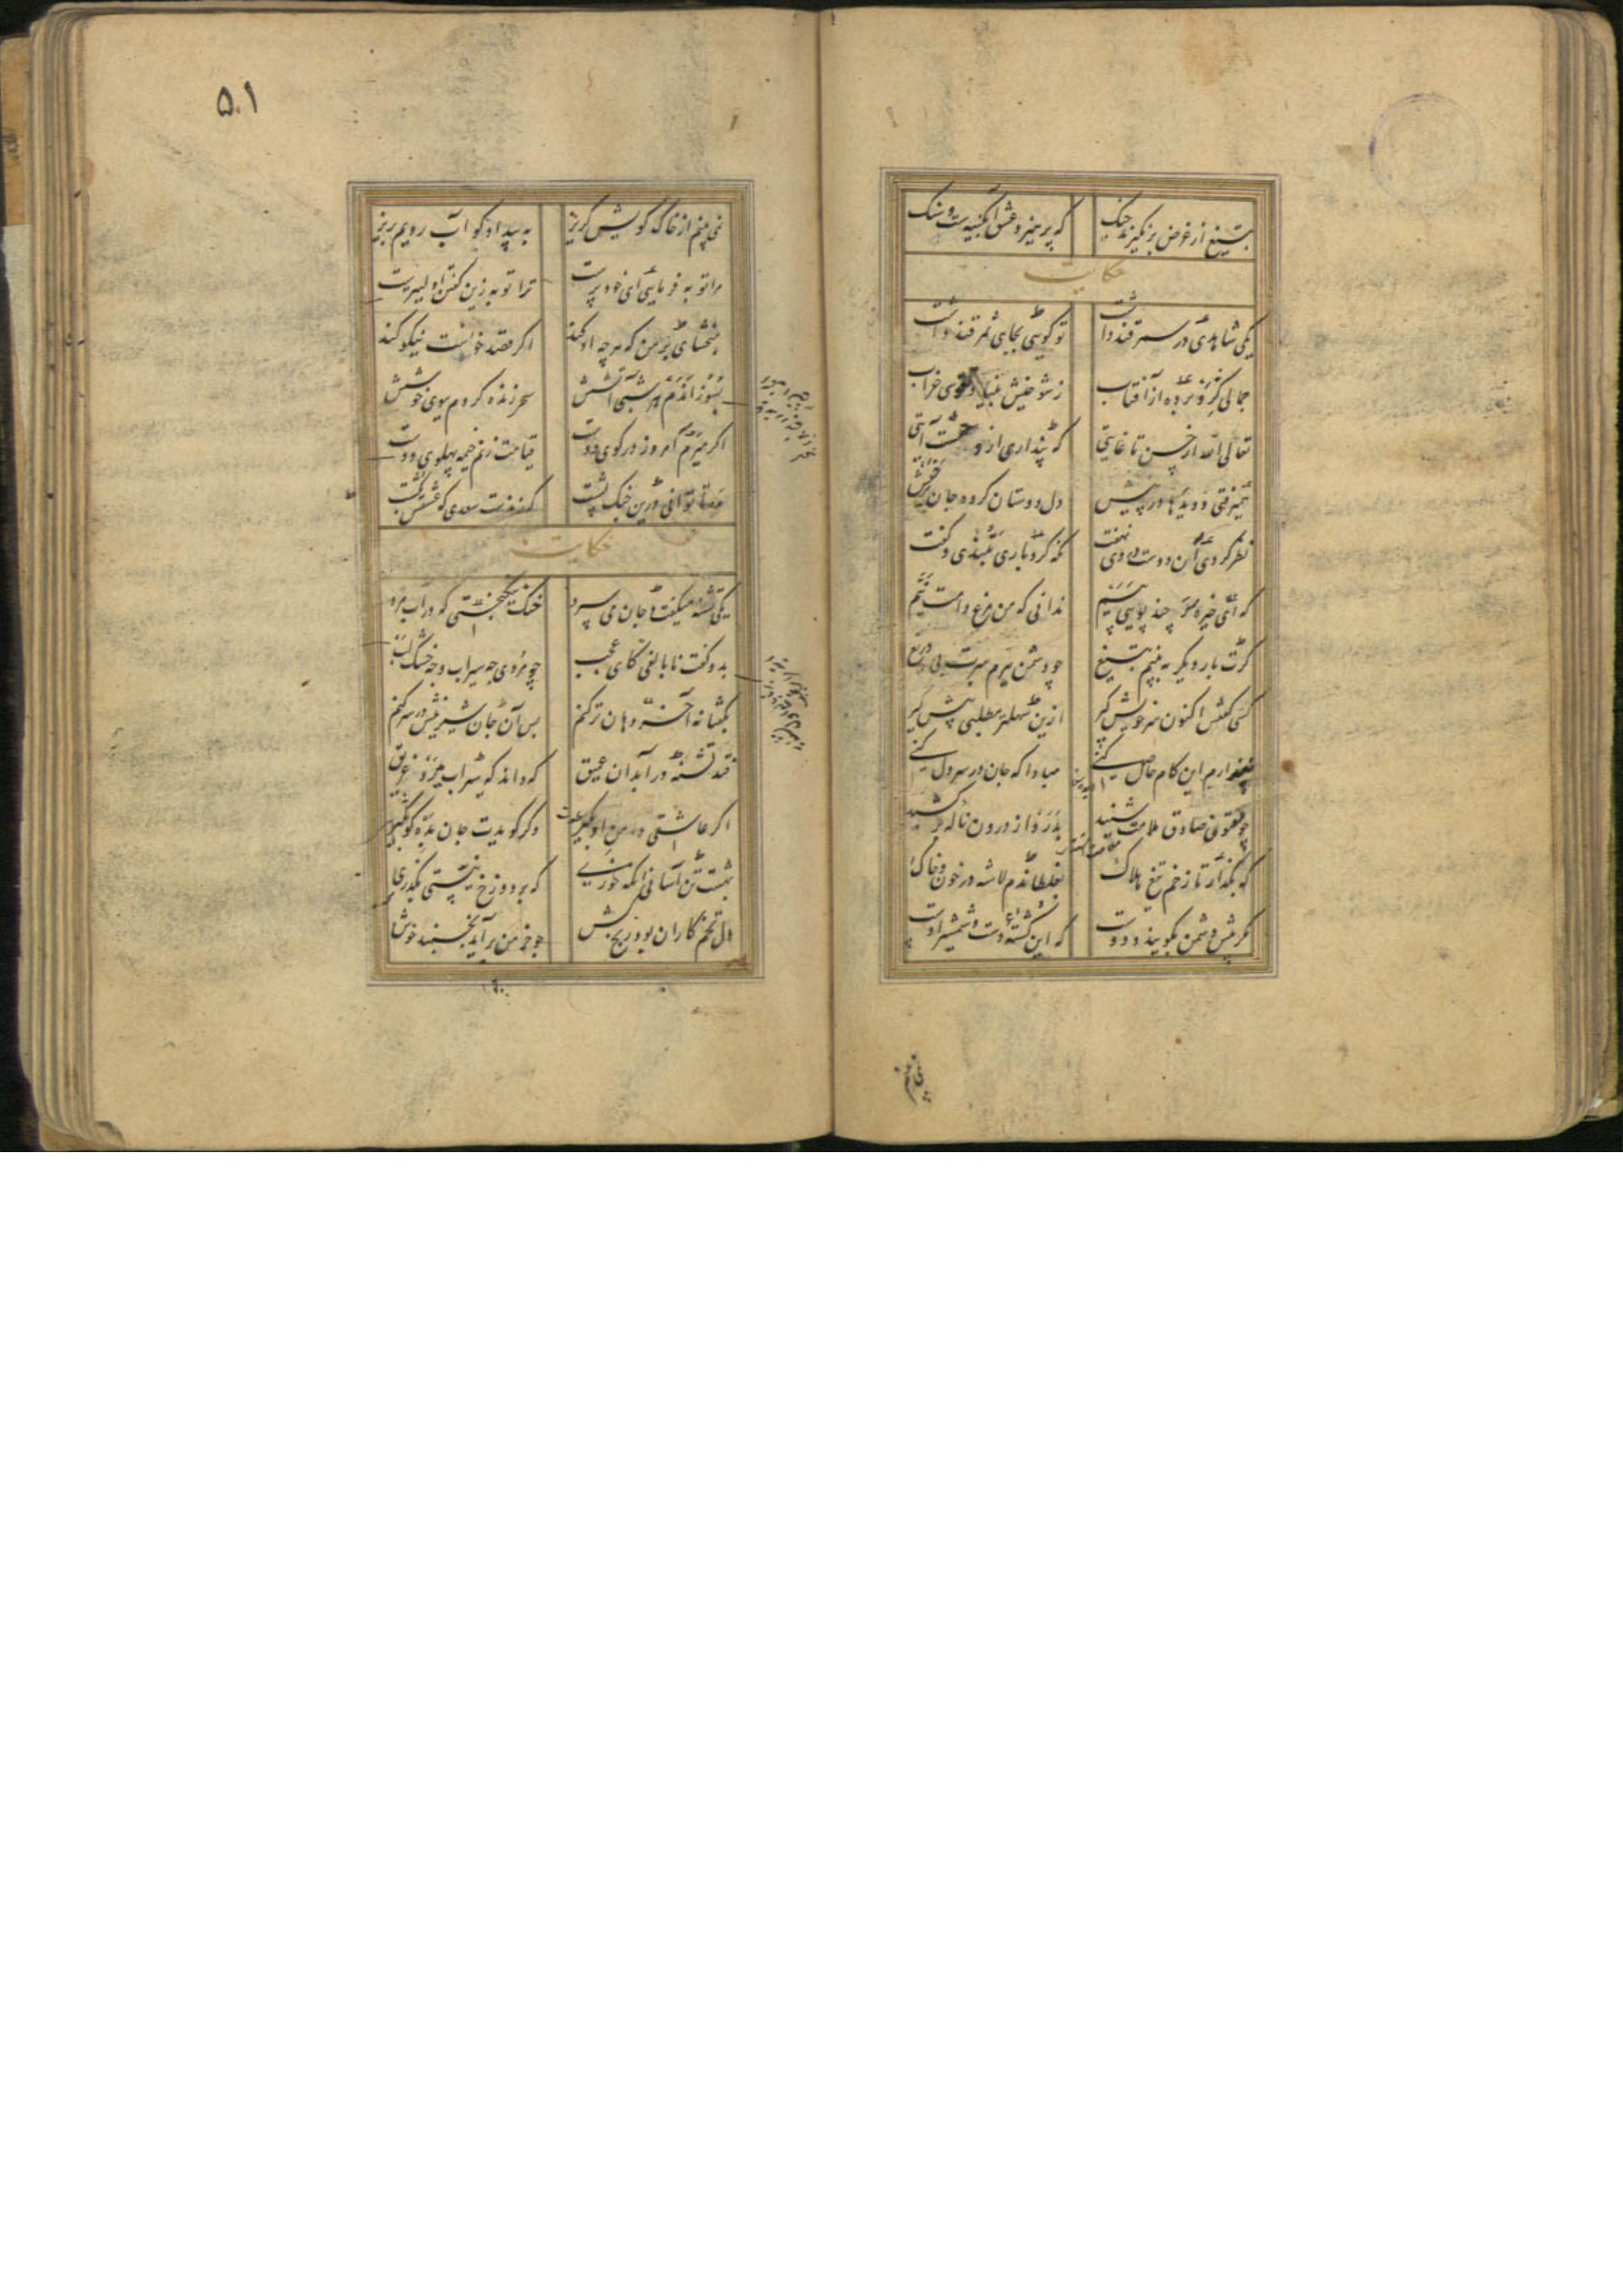 بتیغ از غرض برنگیرند چنک که پرهیز و عشق آبگینست و سنک
حکایت
یکی شاهدی در سمرقند داشت تو گویی بجای ثمر قند داشت
جمالی گرو برده از آفتاب ز شوخیش بنیاد تقوی خراب
تعالی الله از حسن تا غایتی که پنداری از رحمتست آیتی
همیرفتی و دیدها در پیش دل دوستان کرده جان برخیش
نظر کردی آن دوست در وی نهفت نکه کرد باری بتندی و گفت
که ای خیره سر چند پویی پیم ندانی که من مرغ دامت نیم
گرت بار دیگر به بینم بتیغ چو دشمن ببرم سرت بی دریغ
کسی گفتش اکنون سر خویش گیر ازین سهلتر مطلبی پیش گیر
نپندارم این کام حاصل کنی مبادا که جان در سر دل کنی
چو مفتون صادق ملامت شنید بدرد از درون ناله برکشید
که بگذار تا زخم تیغ هلاک بغلطاندم لاشه در خون و خاک
مگر پیش دشمن بگویند و دوست که این کشته دست و شمشیر اوست
۵۰۱
نمی بینم از خاک کویش گریز به بیداد گو آب رویم بریز
مرا توبه فرمایی ای خود پرست ترا توبه زین گفتن اولیترست
ببخشای بر من که هرچه او کند اگر قصد خونست نیکو کند
بسوزاندم هر شبی آتشش سحر زنده کردم ببوی خوشش
اگر میرم امروز در کوی دوست قیامت زنم خیمه پهلوی دوست
مده تا توانی درین جنک پشت که زندست سعدی که عشقش بکشت
حکایت
یکی تشنه میگفت و جان می سپرد خنک نیکبختی که در آب مرد
بدو گفت نابالغی کای عجب چو مردی چه سیراب و چه خشک لب
بگفتا نه آخر دهان تر کنم پس آن جان شیرینش در سر کنم
فتد تشنه در آبدان عمیق که داند که سیراب میرد غریق
اگر عاشقی دامن او بگیر وگر گویدت جان بده گو بگیر
بهشت تن آسانی آنکه خوری که بر دوزخ نیستی بگذری
دل تخم کاران بود رنج کش چو خرمن برآید بخسبند خوش